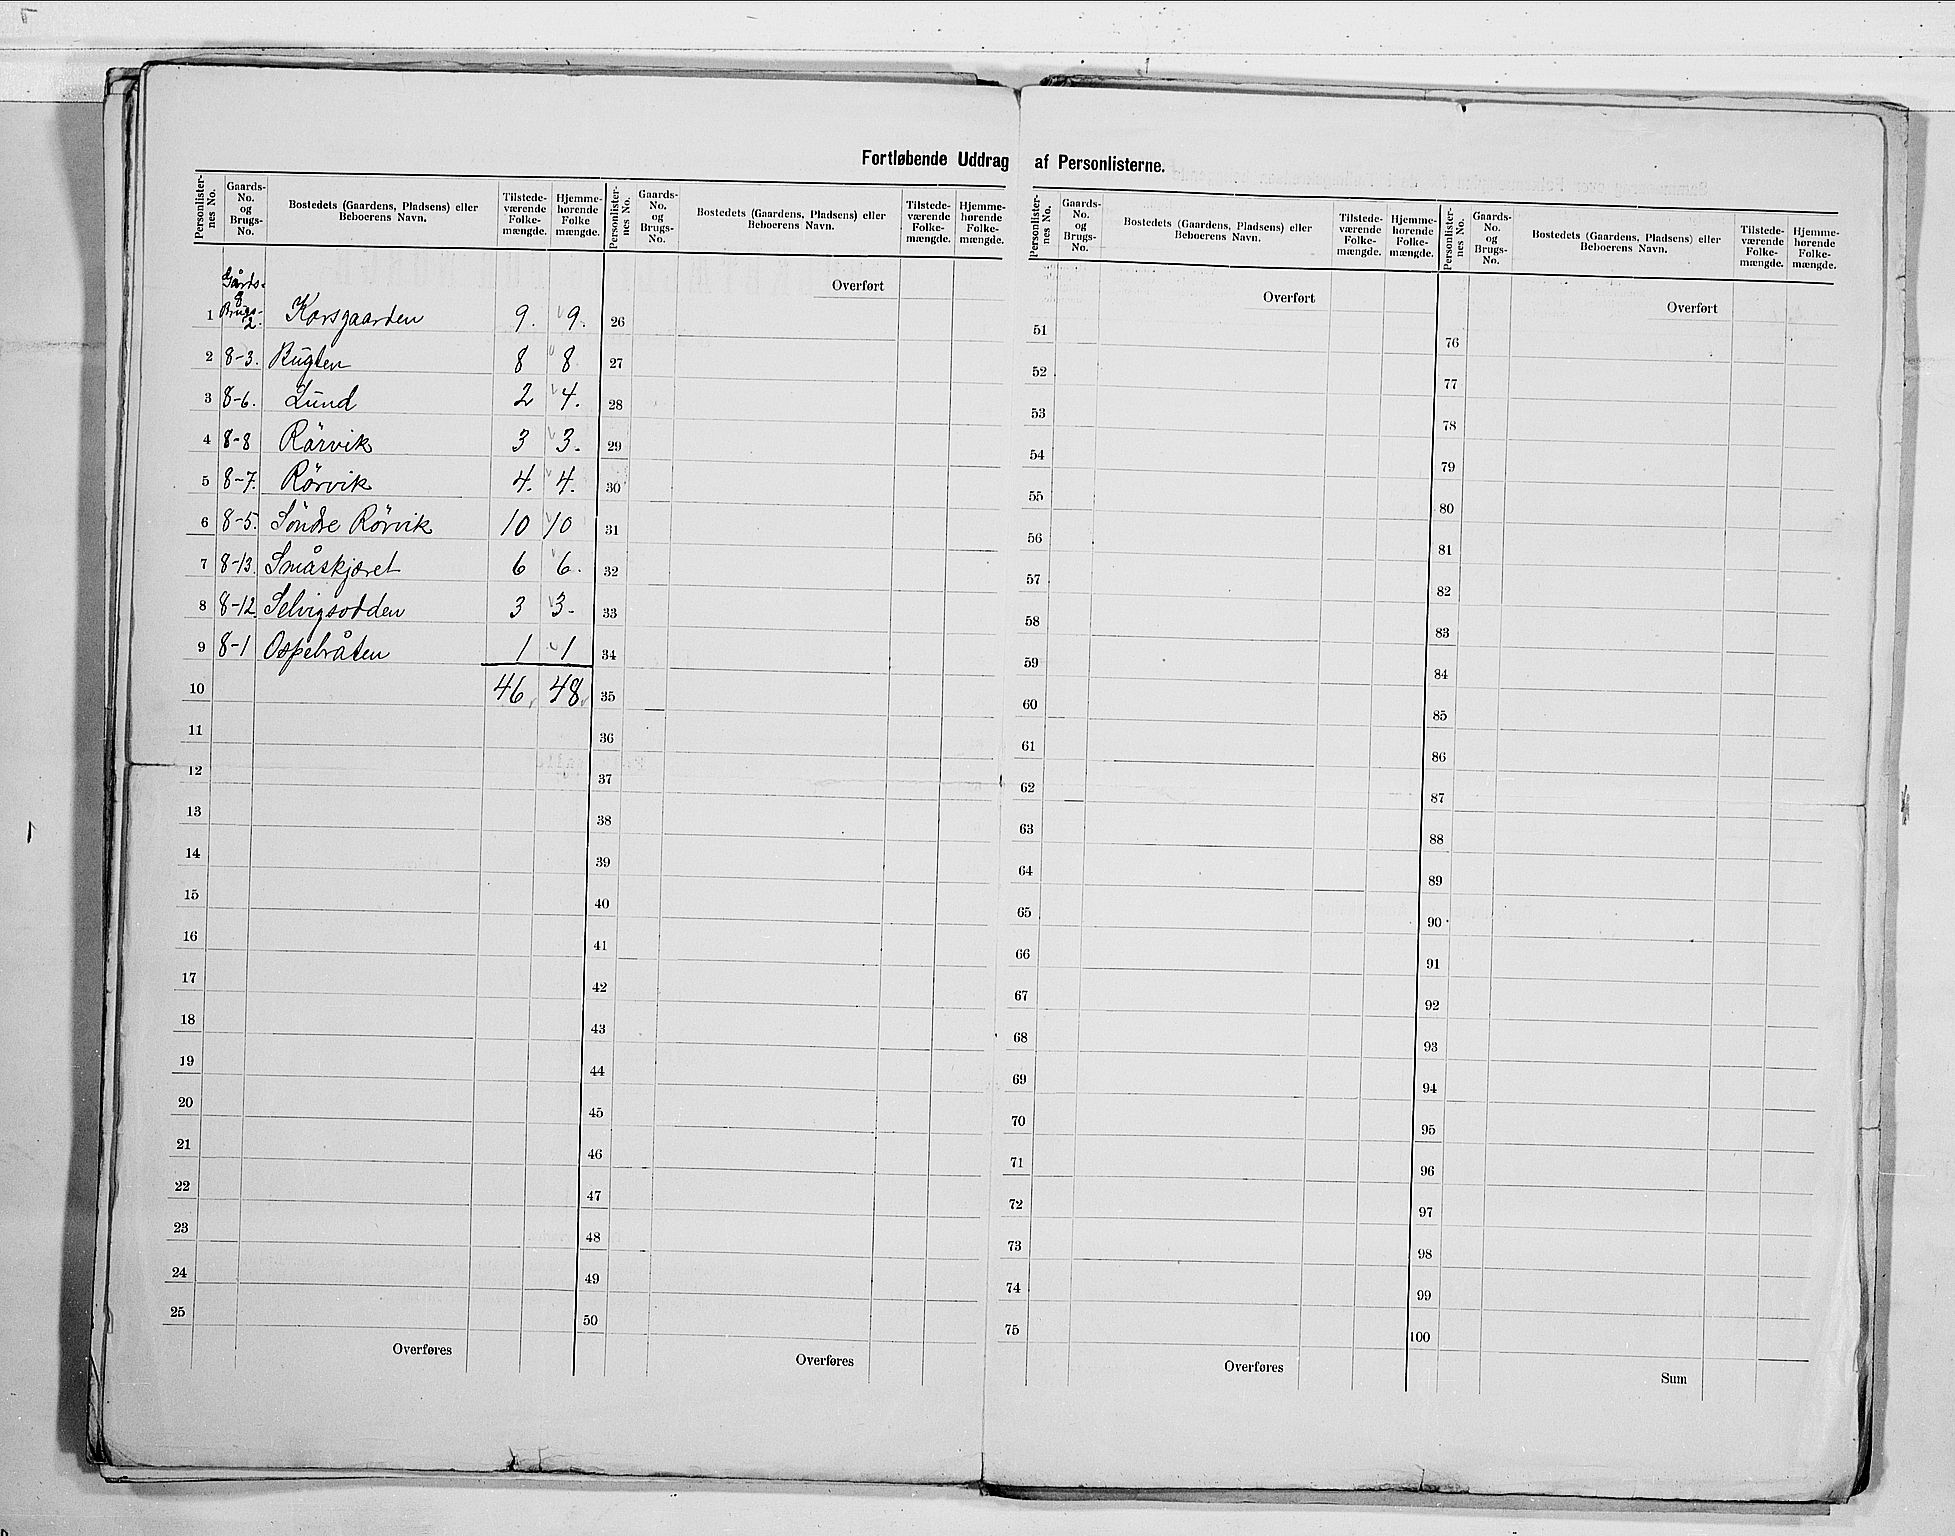 Fortløbende Uddrag af Personlisterne.
Personlister-nes No. Gaards-No. og Brugs-No. Bostedets (Gaardens, Pladsens) eller Beboerens Navn. Tilstede-værende Folke-mængde. Hjemme-hørende Folke mængde.
Personlister-nes No. Gaards-No. og Brugs-No. Bostedets (Gaardens, Pladsens) eller Beboerens Navn. Tilstede-værende Folke-mængde. Hjemme-hørende Folke-mængde.
Personlister-nes No. Gaards-No. og Brugs-No. Bostedets (Gaardens, Pladsens) eller Beboerens Navn. Tilstede-værende Folke-mængde. Hjemme-hørende Folke-mængde.
Personlister-nes No. Gaards-No. og Brugs-No. Bostedets (Gaardens, Pladsens) eller Beboerens Navn. Tilstede-værende Folke-mængde. Hjemme-hørende Folke-mængde.
1 Gårds-8 Brugs-2. Korsgaarden 9. 9.
2 8-3. Bugten 8 8
3 8-6. Lund 2 4.
4 8-8 Rörvik 3 3.
5 8-7. Rörvik 4. 4.
6 8-5. Söndre Rörvik 10 10
7 8-13. Småskjæret 6 6.
8 8-12. Selvigsodden 3 3.
9 8-1 Ospebråten 1 1
10 46 48
11
12
13
14
15
16
17
18
19
20
21
22
23
24
25
Overføres
Overført
26
27
28
29
30
31
32
33
34
35
36
37
38
39
40
41
42
43
44
45
46
47
48
49
50
Overføres
Overført
51
52
53
54
55
56
57
58
59
60
61
62
63
64
65
66
67
68
69
70
71
72
73
74
75
Overføres
Overført
76
77
78
79
80
81
82
83
84
85
86
87
88
89
90
91
92
93
94
95
96
97
98
99
100
Sum